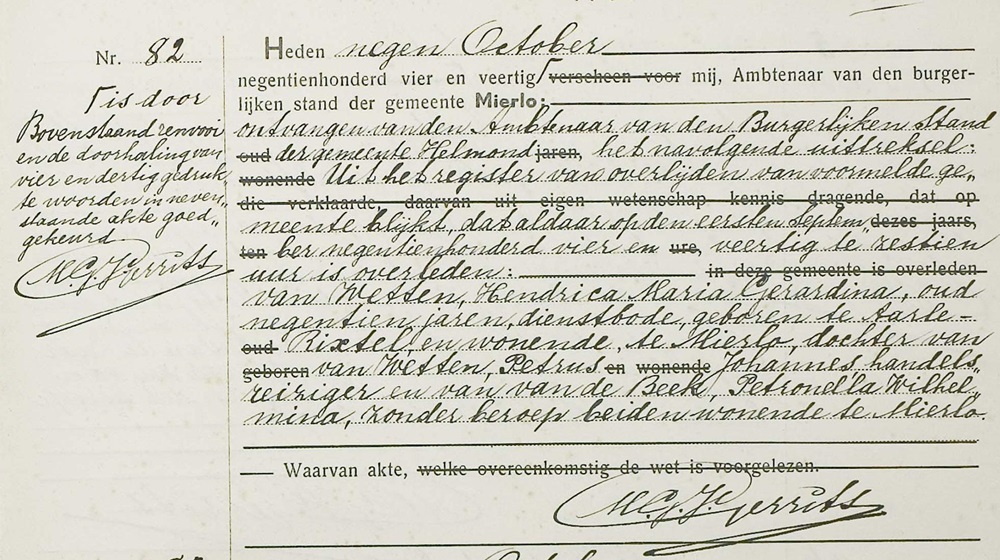 Nr. 82
Γis door
Bovenstaand renvooi
en de doorhaling van
vier en dertig gedruk„
te woorden in neven„
staande akte goed„
gekeurd
M.G.J. Gerrits
Heden negen October
negentienhonderd vier en veertig Γ verscheen voor mij, Ambtenaar van den burger-
lijken stand der gemeente Mierlo:
ontvangen van den Ambtenaar van den Burgerlijken Stand
oud der gemeente Helmond jaren, het navolgende uittreksel:
wonende Uit het register van overlijden van voormelde ge„
die verklaarde, daarvan uit eigen wetenschap kennis dragende, dat op
meente blijkt, dat aldaar op den eersten Septem„ dezes jaars,
ten ber negentienhonderd vier en ure, veertig te zestien
uur is overleden: in deze gemeente is overleden
van Wetten, Hendrica Maria Gerardina, oud
negentien jaren, dienstbode, geboren te Aarle-
oud Rixtel, en wonende, te Mierlo, dochter van
geboren van Wetten, Petrus en wonende Johannes handels„
reiziger en van van de Beek, Petronella Wilhel„
mina, zonder beroep beiden wonende te Mierlo.
Waarvan akte, welke overeenkomstig de wet is voorgelezen.
M.G.J. Gerrits